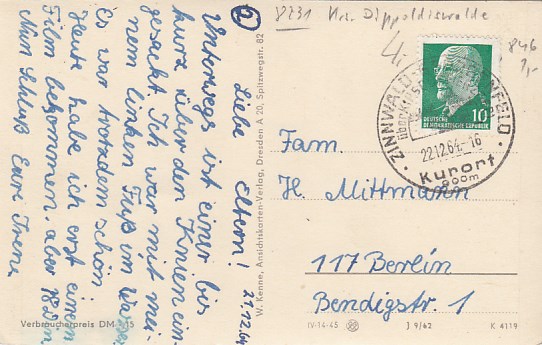 ② Liebe Eltern! 21.12.64
Unterwegs ist einer bis
kurz über den Knien ein-
gesackt. Ich war mit mei-
nem linken Fuß im Wasser
Es war trotzdem schön.
Heute habe ich erst einen
Film bekommen, aber 18 Din.
Nun Schluß Eure Irene
Verbraucherpreis DM -,15
W. Kenne, Ansichtskarten-Verlag, Dresden A 20, Spitzwegstr. 82
8231 Krs. Dippoldiswalde
846
DEUTSCHE
DEMOKRATISCHE REPUBLIK
10
ZINNWALD
22.12.64.-16
Kurort
900m
Fam.
H. Mittmann
117 Berlin
Bendigstr. 1
IV-14-45
J 9/62
K 4119